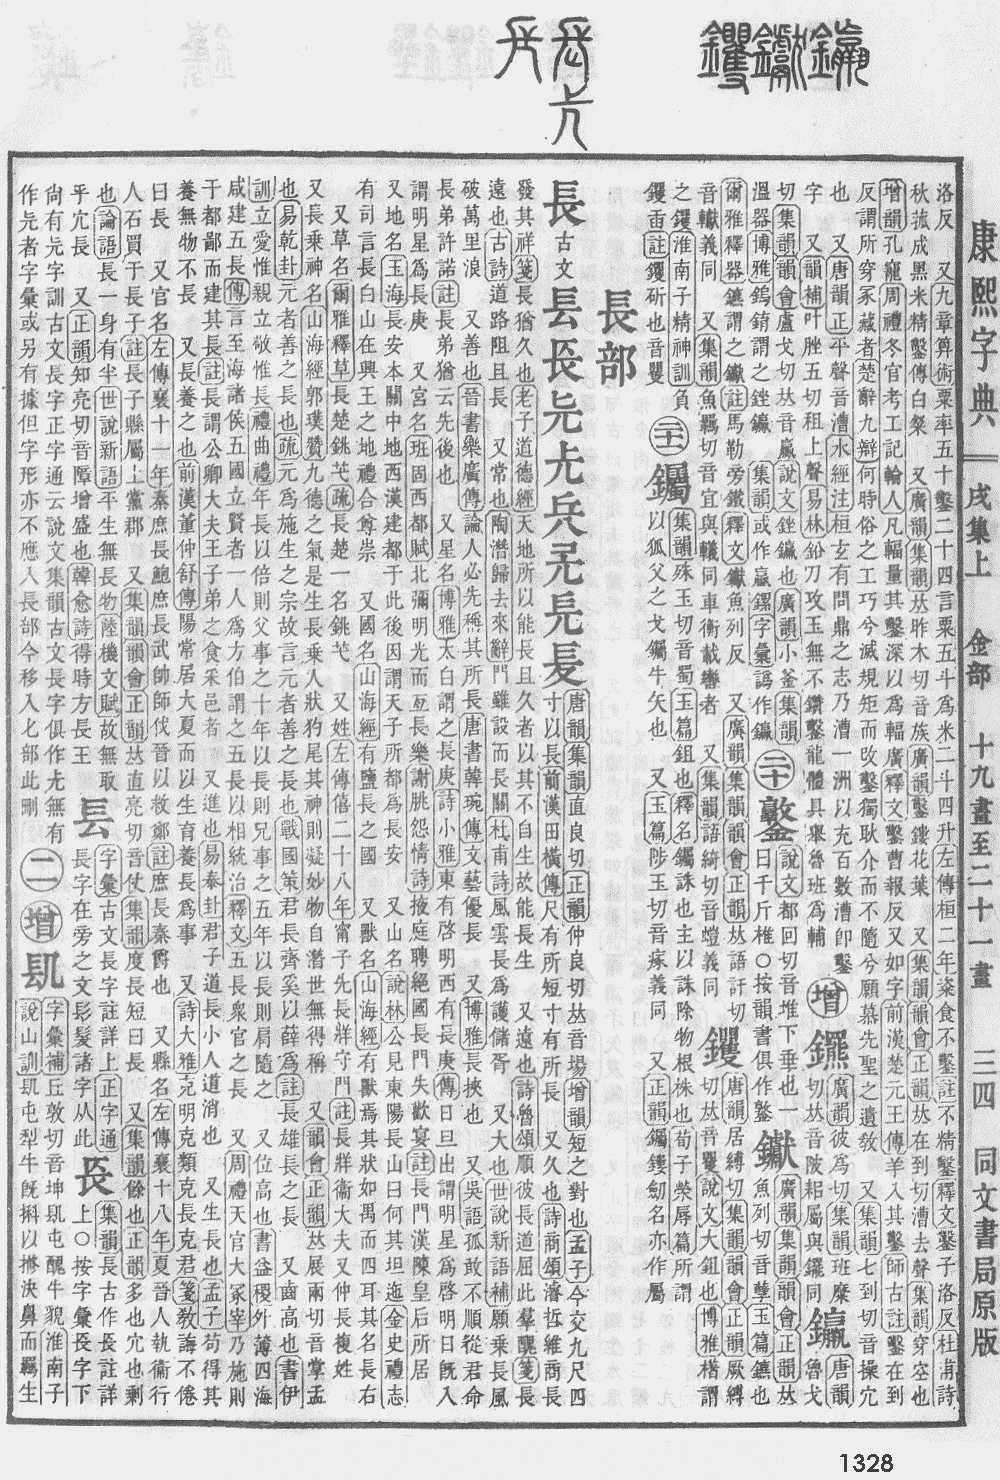 康熙字典 戌集上 金部 十九畫至二十一畫 三四 同文書局原版
洛反 又九章算術粟率五十鑿二十四言粟五斗爲米二斗四升左傳桓二年粢食不鑿註不精鑿釋文鑿子洛反杜甫詩
秋菰成黑米精鑿傳白粲 又廣韻集韻𠀤昨木切音族廣韻鑿鏤花葉 又集韻韻會正韻𠀤在到切漕去聲集韻穿空也
增韻孔竉周禮冬官考工記輪人凡輻量其鑿深以爲輻廣釋文鑿曹報反又如字前漢楚元王傳羊入其鑿師古註鑿在到
反謂所穿冢藏者楚辭九辯何時俗之工巧兮滅規矩而攺鑿獨耿介而不隨兮願慕先聖之遺敎 又集韻七到切音操穴
也 又唐韻正平聲音漕水經注桓玄有問鼎之志乃漕一洲以充百數漕卽鑿
字 又韻補叶脞五切租上聲易林鉛刀攻玉無不鑽鑿龍體具舉魯班爲輔
增 廣韻彼爲切集韻班糜切𠀤音陂耜屬與䥯同
鑘 唐韻魯戈
切集韻韻會盧戈切𠀤音臝說文銼鑘也廣韻小釜集韻
溫器博雅鎢錥謂之銼鑘 集韻或作䥩鏍字彙譌作鏕
二十 鐜 說文都回切音堆下垂也一曰千斤椎○按韻書俱作鐜
钀 廣韻集韻韻會正韻𠀤魚列切音孽玉篇鑣也
爾雅釋器鑣謂之钀註馬勒旁鐵釋文钀魚列反 又廣韻集韻韻會正韻𠀤語訐切
音轙義同 又集韻魚羈切音宜與轙同車衡載轡者 又集韻語綺切音螘義同
钁 唐韻居縛切集韻韻會正韻厥縛切𠀤音矍說文大鉏也博雅櫡謂
之钁淮南子精神訓負
钁臿註钁斫也音矍
二十一 钃 集韻殊玉切音蜀玉篇鉏也釋名钃誅也主以誅除物根株也荀子榮辱篇所謂
以狐父之戈钃牛矢也 又玉篇陟玉切音瘃義同 又正韻钃鏤劒名亦作屬
長部
長 古文
唐韻集韻直良切正韻仲良切𠀤音場增韻短之對也孟子今交九尺四
寸以長前漢田橫傳尺有所短寸有所長 又久也詩商頌濬哲維商長
發其祥箋長猶久也老子道德經天地所以能長且久者以其不自生故能長生 又遠也詩魯頌順彼長道屈此羣醜箋長
遠也古詩道路阻且長 又常也陶潛歸去來辭門雖設而長關杜甫詩風雲長爲護儲胥 又大也世說新語補願乘長風
破萬里浪 又善也晉書樂廣傳論人必先稱其所長唐書韓琬傳文藝優長 又博雅長挾也 又吳語孤敢不順從君命
長弟許諾註長弟猶云先後也 又星名博雅太白謂之長庚詩小雅東有啓明西有長庚傳日旦出謂明星爲啓明日旣入
謂明星爲長庚 又宮名班固西都賦北彌明光而亙長樂謝朓怨情詩掖庭聘絕國長門失歡宴註長門漢陳皇后所居
又地名玉海長安本關中地西漢建都于此後因謂天子所都爲長安 又山名說林公見東陽長山曰何其坦迤金史禮志
有司言長白山在興王之地禮合尊崇 又國名山海經有鹽長之國 又獸名山海經有獸焉其狀如禺而四耳其名長右
又草名爾雅釋草長楚銚芅疏長楚一名銚芅 又姓左傳僖二十八年甯子先長牂守門註長牂衞大夫又仲長複姓
又長乗神名山海經郭璞贊九德之氣是生長乗人狀狗尾其神則凝妙物自潛世無得稱 又韻會正韻𠀤展兩切音掌孟
也易乾卦元者善之長也疏元爲施生之宗故言元者善之長也戰國策君長齊奚以薛爲註長雄長之長 又齒高也書伊
訓立愛惟親立敬惟長禮曲禮年長以倍則父事之十年以長則兄事之五年以長則肩隨之 又位高也書益稷外薄四海
咸建五長傳言至海諸侯五國立賢者一人爲方伯謂之五長以相統治釋文五長衆官之長 又周禮天官大冢宰乃施則
于都鄙而建其長註長謂公卿大夫王子弟之食采邑者 又進也易泰卦君子道長小人道消也 又生長也孟子苟得其
養無物不長 又長養之也前漢董仲舒傳陽常居大夏而以生育養長爲事 又詩大雅克明克類克長克君箋敎誨不倦
曰長 又官名左傳襄十一年秦庶長鮑庶長武帥師伐晉以救鄭註庶長秦爵也 又縣名左傳襄十八年夏晉人執衞行
人石買于長子註長子縣屬上黨郡 又集韻韻會正韻𠀤直亮切音仗集韻度長短曰長 又集韻餘也正韻多也冗也剩
也論語長一身有半世說新語平生無長物陸機文賦故無取
乎冗長 又正韻知亮切音障增盛也韓愈詩得時方長王
镸 字彙古文長字註詳上正字通長字在旁之文髟髮諸字从此
镹 集韻長古作镹註詳上○按字彙镹字下
尙有兏字訓古文長字正字通云說文集韻古文長字俱作兂無有
作兏者字彙或另有據但字形亦不應入長部今移入匕部此刪
二 增 字彙補丘敦切音坤
說山訓
屯犂牛旣㸹以㹋決鼻而羈生
屯醜牛貌淮南子
1328